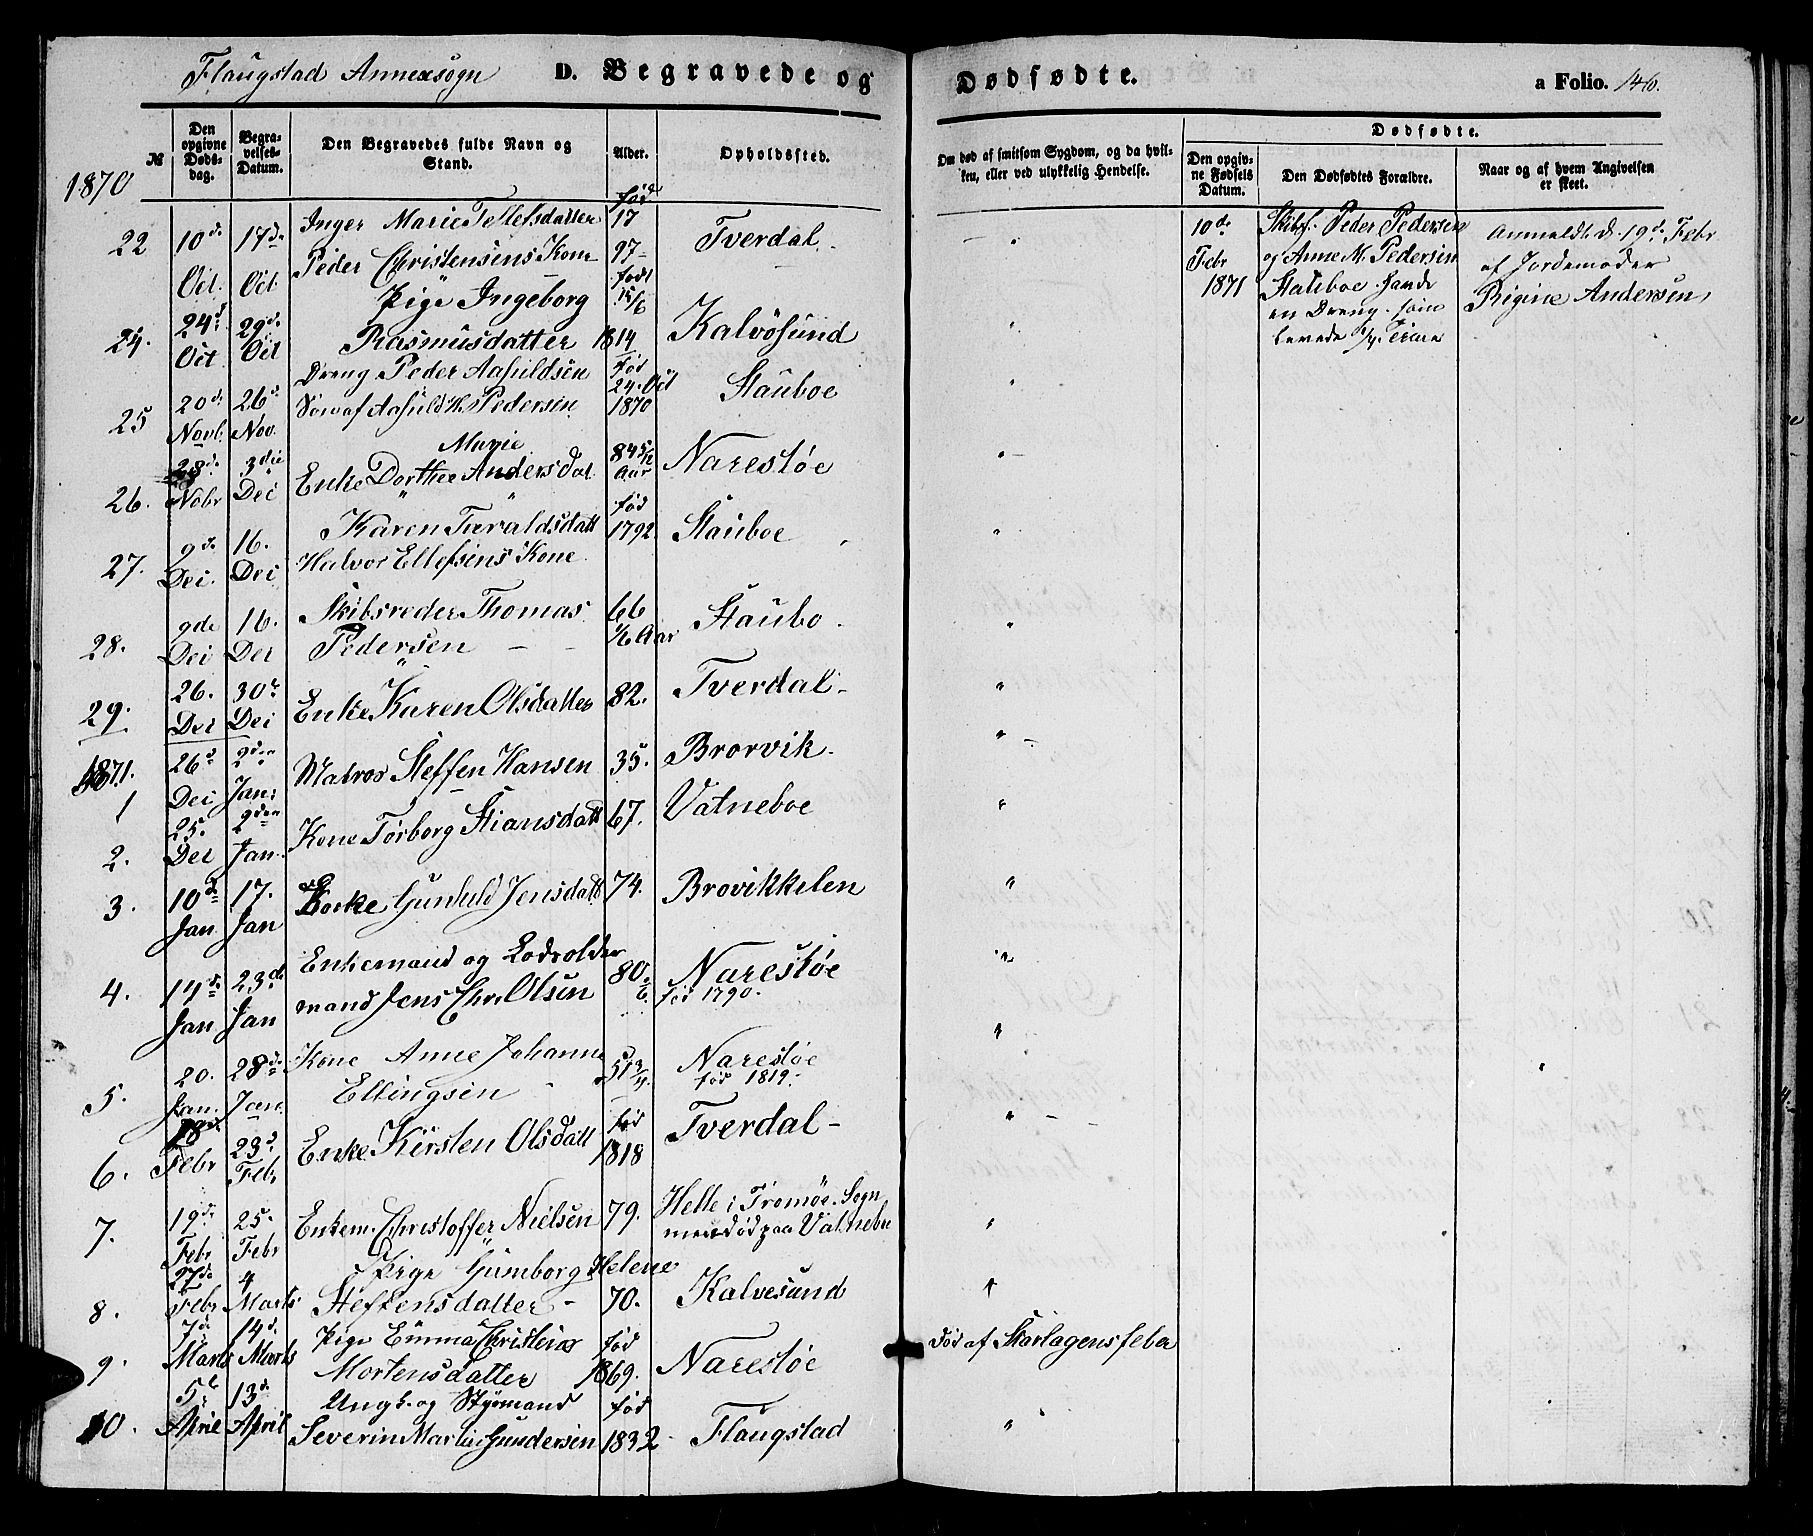 Flaugstad Annexsogn D. Begravede og
Dødfødte. a Folio. 146.
№
Den opgivne Døds-dag.
Begra-velses-Datum.
Den Begravedes fulde Navn og Stand.
Alder.
Opholdssted.
Om død af smitsom Sygdom, og da hvil-ken, eller ved ulykkelig Hendelse.
Dødfødte.
Den opgiv-ne Fødsels Datum.
Den Dødfødtes Forældre.
Naar og af hvem Angivelsen er skeet.
1870
22 10de Oct. 17de Oct. Inger Marie Tellefsdatter
Peder Christensens Kone
fød 17 97 Tverdal.
24. 24d Oct 29de Oct Pige Ingeborg
Rasmusdatter
født 15/6 1814 Kalvøsund
25 20de Novb. 26de Nov. Dreng Peder Aasuldsen
Søn af Aasuld H. Pedersen
fød 24. Oct 1870 Stauboe
26. 28de Nobr 3die Dec Marie
Enke Dorthee Andersdat. 84 5/12 Aar Narestøe
27. 9de Dec. 16. Dec Karen Taraldsdatt
Halvor Ellefsens Kone
fød 1792 Stauboe
28. 9de Dec 16. Dec Skibsreder Thomas
Pedersen
66 1/6 Aar Staubo.
29. 26. Dec 30te Dec Enke Karen Olsdatter 82. Tverdal
1871.
1 26d Dec 2den Jan: Matros Steffen Hansen 35. Brorvik.
2. 25. Dec 2den Jan. Kone Torborg Stiansdatt 67. Vatneboe
3. 10de Jan 17. Jan Enke Gunhild Jensdatt 74. Brovikkelen
4. 14de Jan 23de Jan Enkemand og Lodsolder
mand Jens Chr. Olsen
80 Narestøe
fød 1790.
5. 20. Jan. 28de Jan. Kone Anne Johanne
Ellingsen
51 3/4 Narestøe
fød 1819.
6. 18 Febr 23d Febr Enke Kirsten Olsdatt fød 1818 Tverdal
7. 19de Febr 25. Febr Enkem. Christoffer Nielsen 79. Helle i Tromøe Sogn
men død paa Vatnebu
8. 27de Febr 4 Marts Pige Gumborg Helene
Steffensdatter 70. Kalvesund
9. 7de Marts 14d. Marts Pige Emma Christine
Mortensdatter
fød 1869. Narestøe
Død af Skarlagensfeber
10. 5t April 13de April Ungk. og Styrmand
Severin Martin Gundersen
fød 1832 Flaugstad
10de Febr 1871
Skibsf. Peder Pedersen
og Anne M. Pedersen
Stauboe. Havde
en Dreng som
levede 1/4 Time
Anmeldt d. 19d. Febr
af Jordemoder
Rigine Andersen